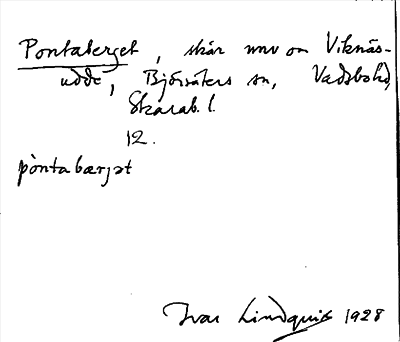 Pontaberget, skär nnv on Viknäs-
udde, Björsäters sn, Vadsbohd,
Skarab. l.
12.
pòntabærjət
Ivar Lindquist 1928